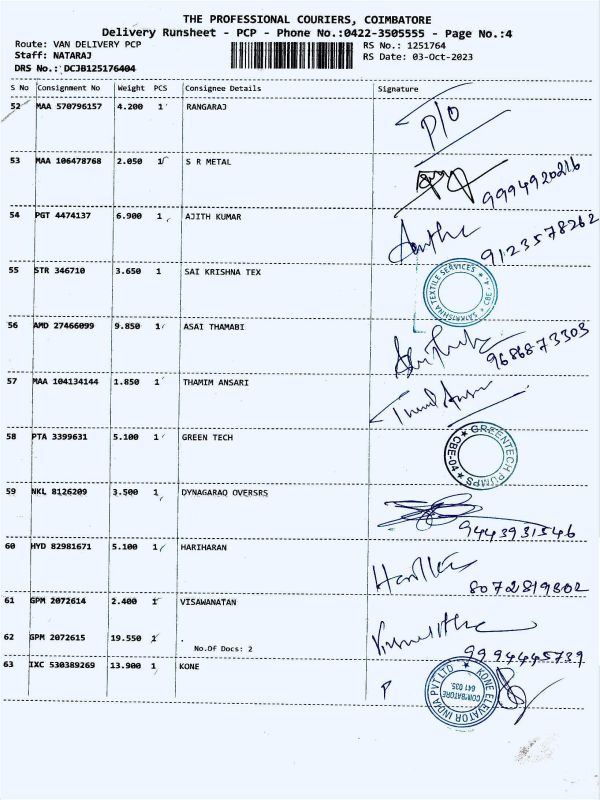 THE PROFESSIONAL COURIERS, COIMBATORE
Delivery Runsheet - PCP - Phone No.:0422-3505555 - Page No.:4
Route: VAN DELIVERY PCP RS No.: 1251764
Staff: NATARAJ RS Date: 03-Oct-2023
DRS No.: DCJB125176404
S No Consignment No Weight PCS Consignee Details Signature
52 MAA 570796157 4.200 1 RANGARAJ P/O
53 MAA 106478768 2.050 1 S R METAL 9994920216
54 PGT 4474137 6.900 1 AJITH KUMAR 9123578262
55 STR 346710 3.650 1 SAI KRISHNA TEX SAIKRISHNA TEXTILE SERVICES ★ CBE - 4. ★
56 AMD 27466099 9.850 1 ASAI THAMABI 9686873303
57 MAA 104134144 1.850 1 THAMIM ANSARI
58 PTA 3399631 5.100 1 GREEN TECH ★ GREENTECH PUMPS ★ CBE-04
59 NKL 8126209 3.500 1 DYNAGARAQ OVERSRS 9443931546
60 HYD 82981671 5.100 1 HARIHARAN 8072819802
61 GPM 2072614 2.400 1 VISAWANATAN
62 GPM 2072615 19.550 1 . 9994445739
No.Of Docs: 2
63 IXC 530389269 13.900 1 KONE P KONE ELEVATOR INDIA PVT LTD ★ COIMBATORE 641 035.